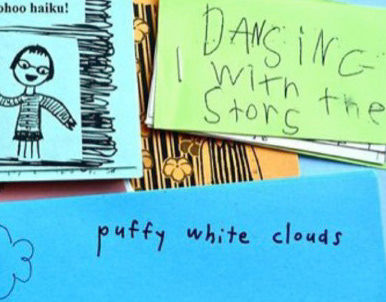 ohoo haiku!
DANSiNG
I with the
Stors
puffy white clouds